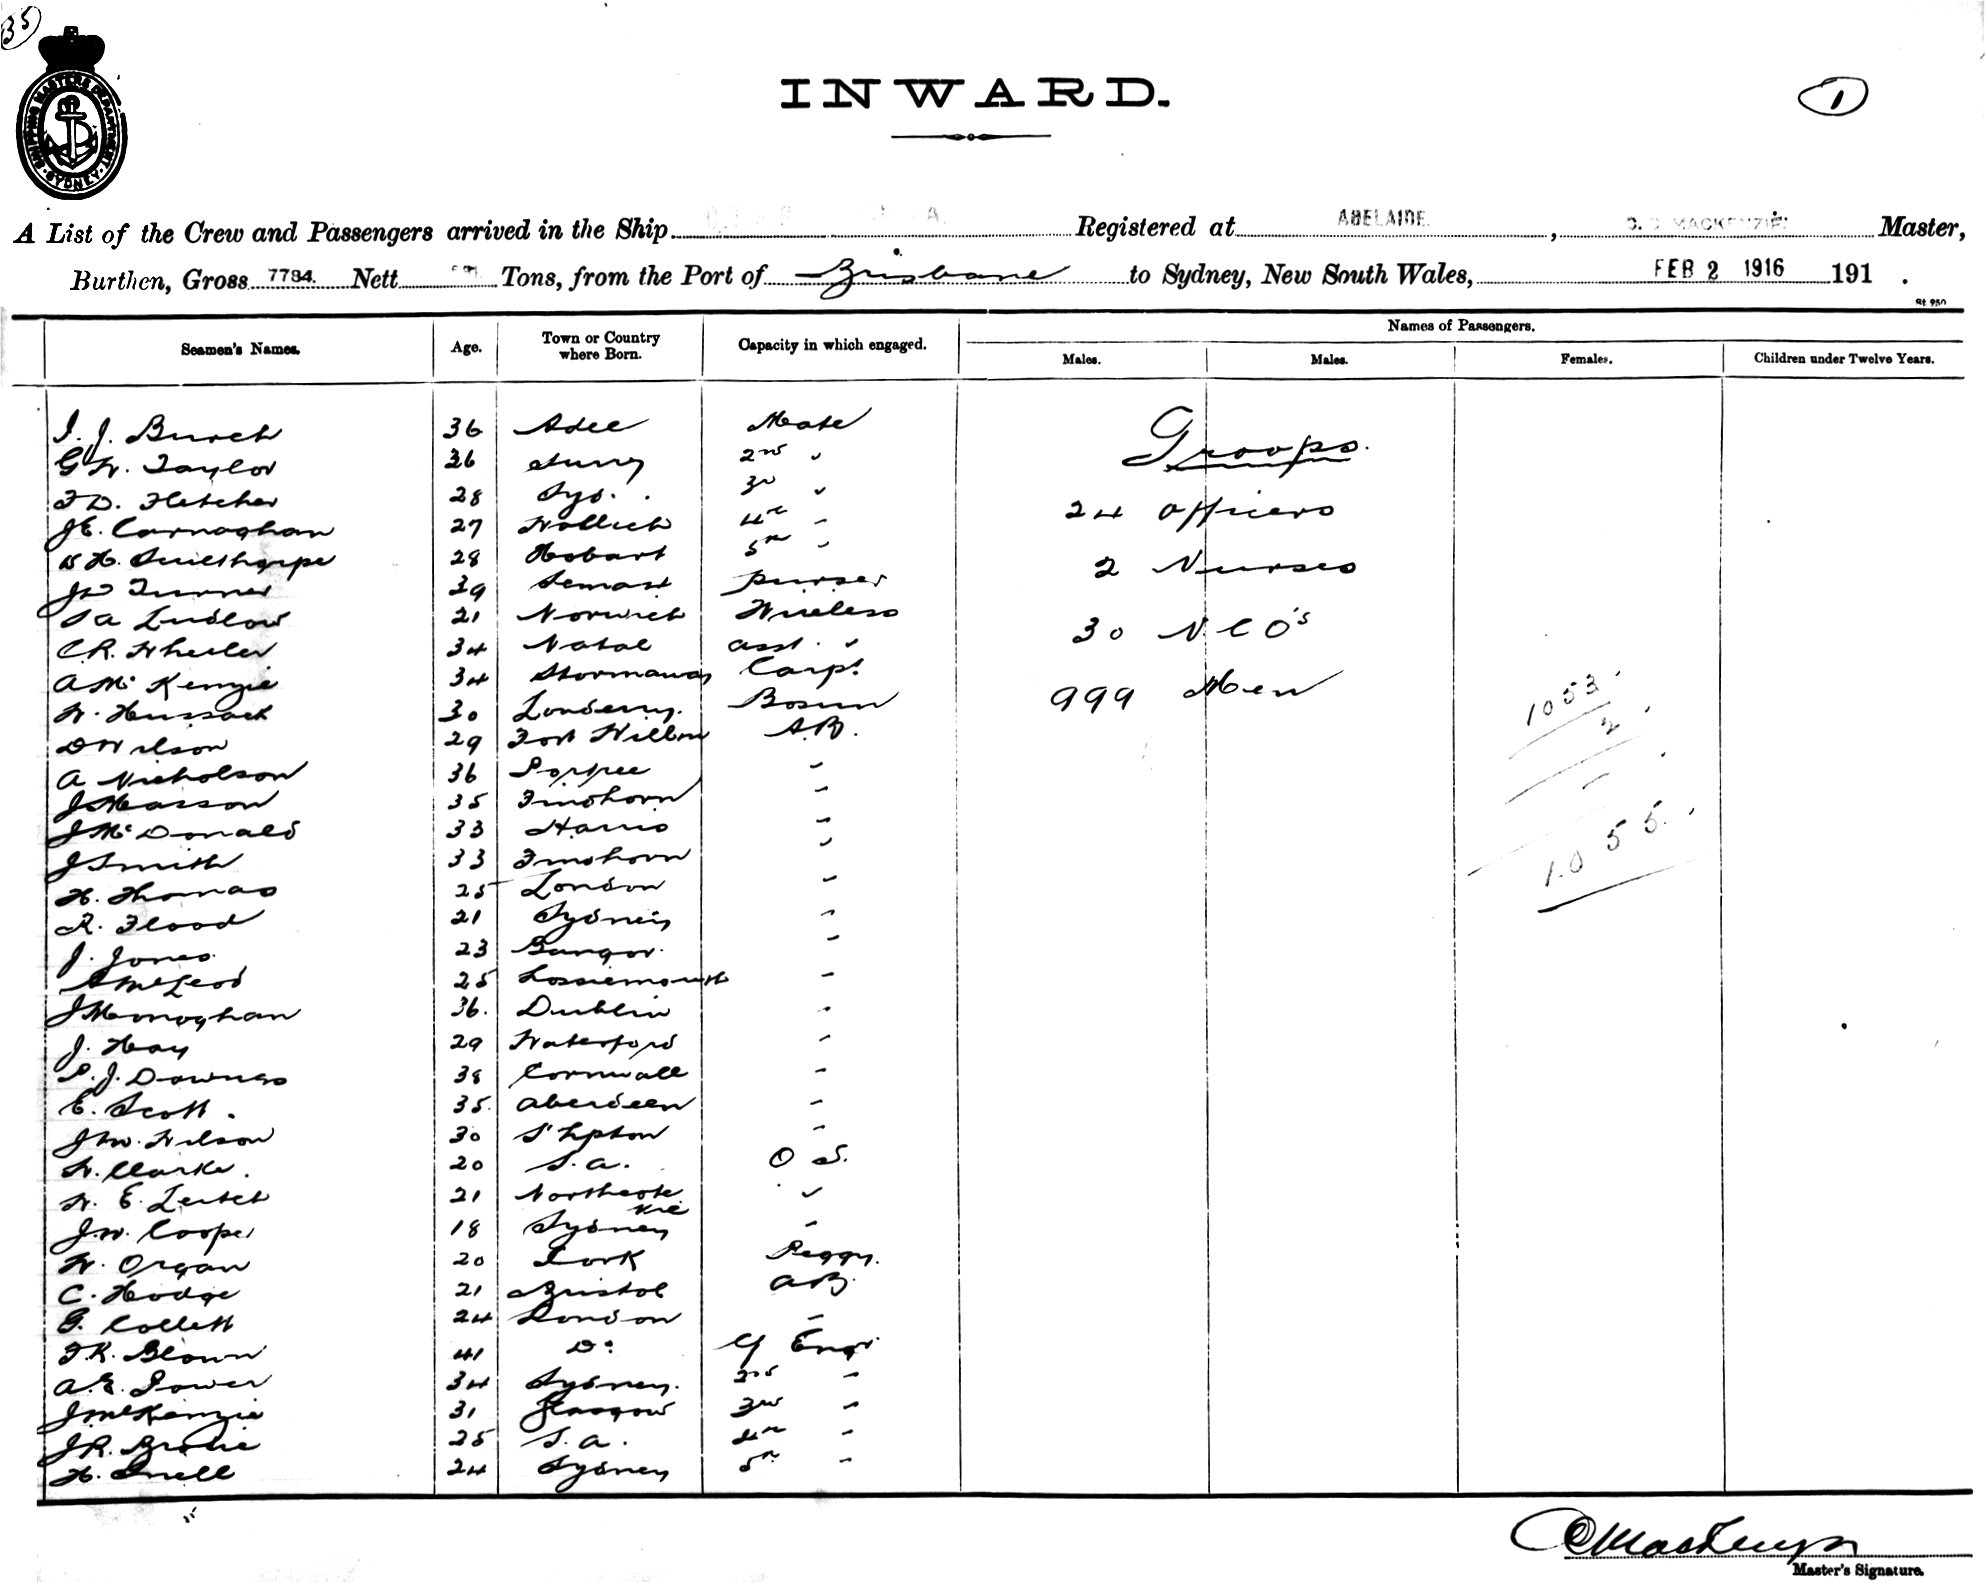 35
SHIPPING MASTERS DEPARTMENT
SYDNEY
INWARD.
1
A List of the Crew and Passengers arrived in the Ship Registered at ADELAIDE, C. C MACKENZIE Master,
Burthen, Gross 7784. Nett Tons, from the Port of Brisbane to Sydney, New South Wales, FEB 2 1916 191 .
St 950
Seamen's Names. Age. Town or Country where Born. Capacity in which engaged. Names of Passengers.
Males. Males. Females. Children under Twelve Years.
I. J. Burch 36 Adel Mate
G W. Taylor 36 Surrey 2nd "
Troops.
F D. Fletcher 28 Syd. 3rd "
24 Officers
J E. Carnaghan 27 4th "
H. 28 Hobart 5th "
2 Nurses
J W Turner 39 Purser
S A Ludlow 21 Norwich Wireless
30 NCO's
C. R. Wheeler 34 Natal asst. "
A Mc Kenzie 34 Stornaway Carpt.
999 Men
W. Hussack 30 Londerry. Bosun
1053
2
D Wilson 29 Fort Willm A.B.
A Nicholson 36 "
J Masson 35 Findhorn "
J Mc Donald 33 Harris "
1055.
J Smith 33 Findhorn "
H. Thomas 25 London "
R. Flood 21 Sydney "
J. Jones 23 Bangor. "
A McLeod 25 Lossiemouth "
J Monoghan 36. Dublin "
J. Hay 29 Waterford "
P. J. Downes 38 Cornwall "
E. Scott. 35. Aberdeen "
J W. Wilson 30 S'hpton "
W. Clarke. 20 S.A. O S.
W. E. Leitch 21 Northcote Vic "
J. W. Cooper 18 Sydney "
W. Organ 20 Cork Peggy.
C. Hodge 21 Bristol AB.
G. Collett 24 London "
F. K. Blown 41 Do Cf Engr.
A. E. Power 34 Sydney. 2nd "
J McKenzie 31 Glasgow 3rd "
J R. Brodie 25 S.A. 4th "
H. Snell 24 Sydney 5th "
C C MacKenzie
Master's Signature.